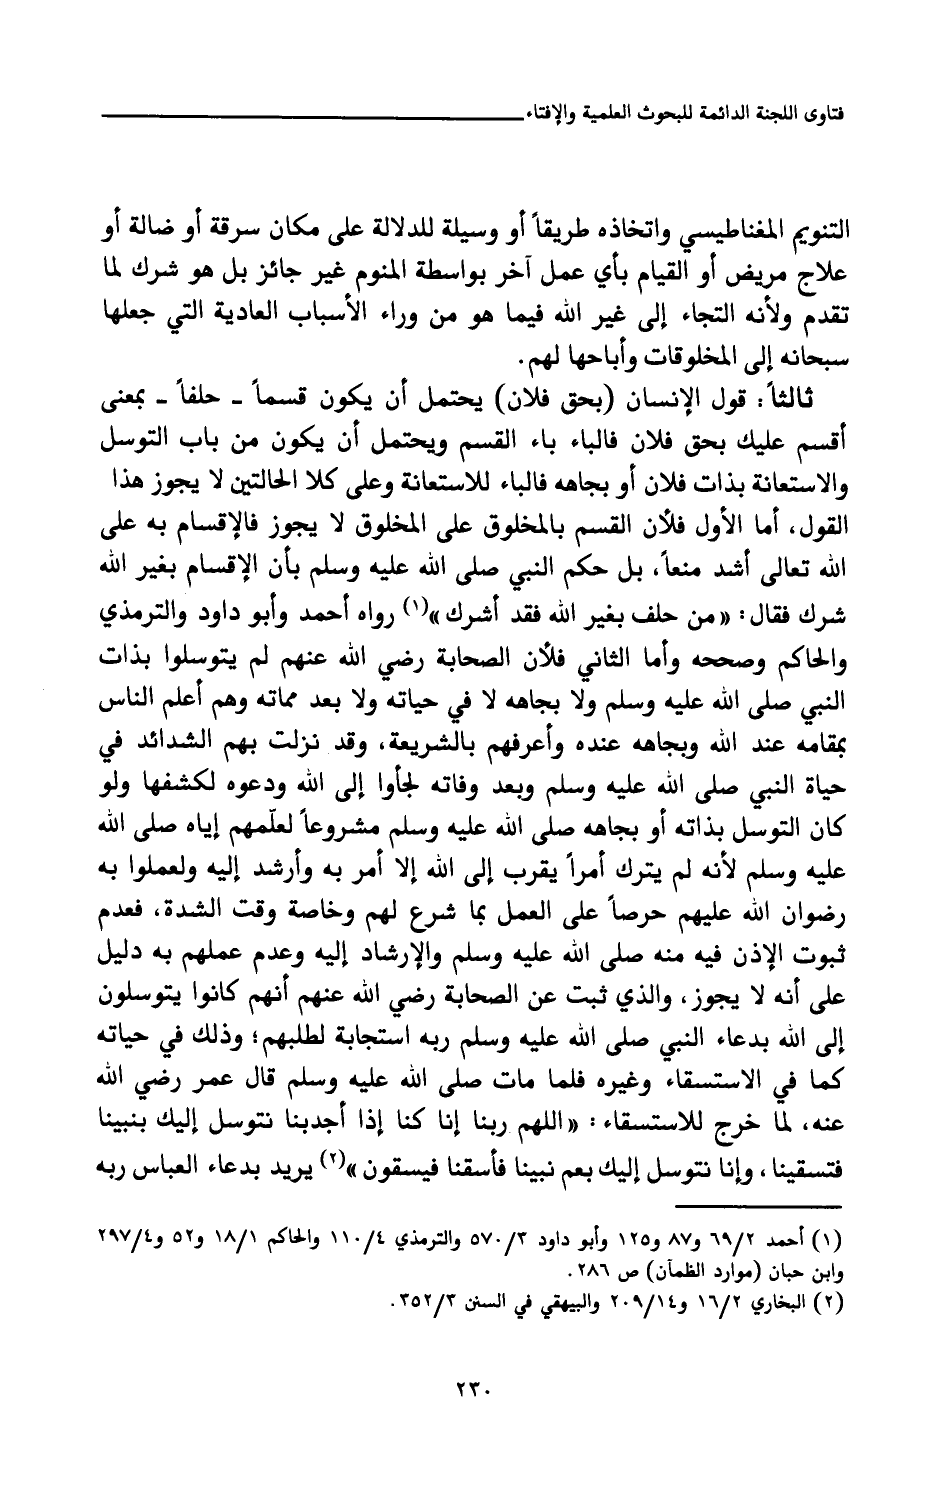 فتاوى اللجنة الدائمة للبحوث العلمية والإفتاء
التنويم المغناطيسي واتخاذه طريقاً أو وسيلة للدلالة على مكان سرقة أو ضالة أو
علاج مريض أو القيام بأي عمل آخر بواسطة المنوم غير جائز بل هو شرك لما
تقدم ولأنه التجاء إلى غير الله فيما هو من وراء الأسباب العادية التي جعلها
سبحانه إلى المخلوقات وأباحها لهم.
ثالثاً: قول الإنسان (بحق فلان) يحتمل أن يكون قسماً ـ حلفاً ـ بمعنى
أقسم عليك بحق فلان فالباء باء القسم ويحتمل أن يكون من باب التوسل
والاستعانة بذات فلان أو بجاهه فالباء للاستعانة وعلى كلا الحالتين لا يجوز هذا
القول، أما الأول فلأن القسم بالمخلوق على المخلوق لا يجوز فالإقسام به على
الله تعالى أشد منعاً، بل حكم النبي صلى الله عليه وسلم بأن الإقسام بغير الله
شرك فقال: «من حلف بغير الله فقد أشرك»(١) رواه أحمد وأبو داود والترمذي
والحاكم وصححه وأما الثاني فلأن الصحابة رضي الله عنهم لم يتوسلوا بذات
النبي صلى الله عليه وسلم ولا بجاهه لا في حياته ولا بعد مماته وهم أعلم الناس
بمقامه عند الله وبجاهه عنده وأعرفهم بالشريعة، وقد نزلت بهم الشدائد في
حياة النبي صلى الله عليه وسلم وبعد وفاته لجأوا إلى الله ودعوه لكشفها ولو
كان التوسل بذاته أو بجاهه صلى الله عليه وسلم مشروعاً لعلّمهم إياه صلى الله
عليه وسلم لأنه لم يترك أمراً يقرب إلى الله إلا أمر به وأرشد إليه ولعملوا به
رضوان الله عليهم حرصاً على العمل بما شرع لهم وخاصة وقت الشدة، فعدم
ثبوت الإذن فيه منه صلى الله عليه وسلم والإرشاد إليه وعدم عملهم به دليل
على أنه لا يجوز، والذي ثبت عن الصحابة رضي الله عنهم أنهم كانوا يتوسلون
إلى الله بدعاء النبي صلى الله عليه وسلم ربه استجابة لطلبهم؛ وذلك في حياته
كما في الاستسقاء وغيره فلما مات صلى الله عليه وسلم قال عمر رضي الله
عنه، لما خرج للاستسقاء: «اللهم ربنا إنا كنا إذا أجدبنا نتوسل إليك بنبينا
فتسقينا، وإنا نتوسل إليك بعم نبينا فأسقنا فيسقون»(٢) يريد بدعاء العباس ربه
(١) أحمد ٦٩/٢ و٨٧ و١٢٥ وأبو داود ٥٧٠/٣ والترمذي ١١٠/٤ والحاكم ١٨/١ و٥٢ و٢٩٧/٤
وابن حبان (موارد الظمآن) ص ٢٨٦.
(٢) البخاري ١٦/٢ و٢٠٩/١٤ والبيهقي في السنن ٣٥٢/٣.
٢٣٠